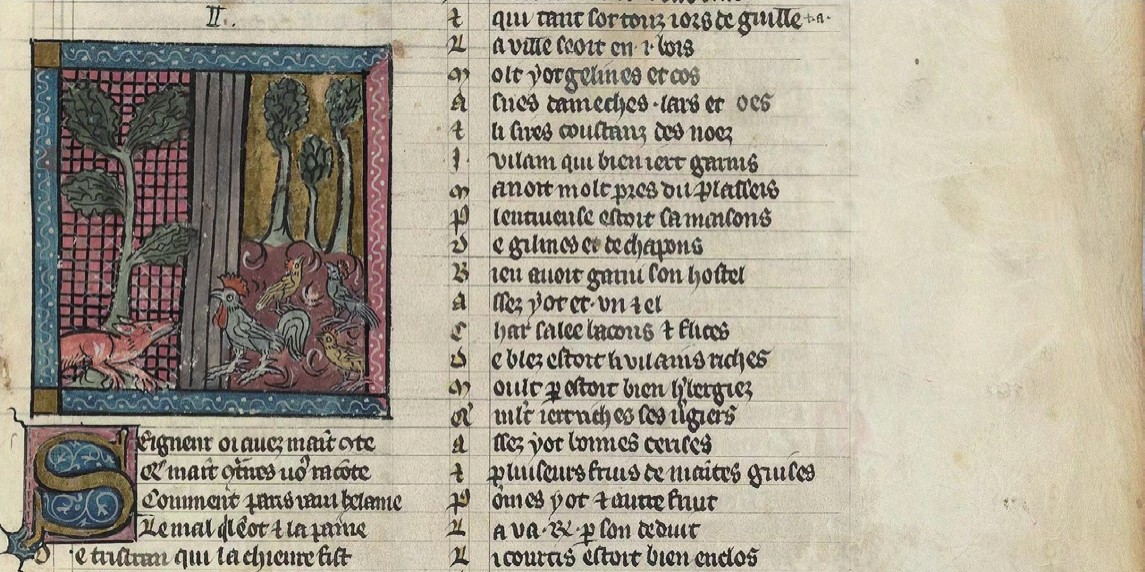 II.
Seignent oi avez mait 9te
Q mait 9tires vos racōte
Comment paris ravi helaine
Le mal q'l ēot & la paine
De tristran qui la chievre fist
& qui tant sor touz iors de guille
La ville seoit en .i. bois
Molt y ot gelines et cos
Anes tameches .iars et oes
& li sires coustanz des noez
I. vilain qui bien iert garnis
Manoit molt pres du plasseis
Plentiueuse estoit sa maisons
De gilines et de chapons
Bien auoit garni son hostel
Assez y ot et .vn & el
Char salee bacons & flices
De blez estoit li vilains riches
Moult p estoit bien h'bergiez
Q mlt iert riches ses v'giers
Assez y ot bonnes cerises
& pluiseurs fruis de maites guises
Pomes y ot & autre fruit
La va .R. p son deduit
Li courtis estoit bien enclos